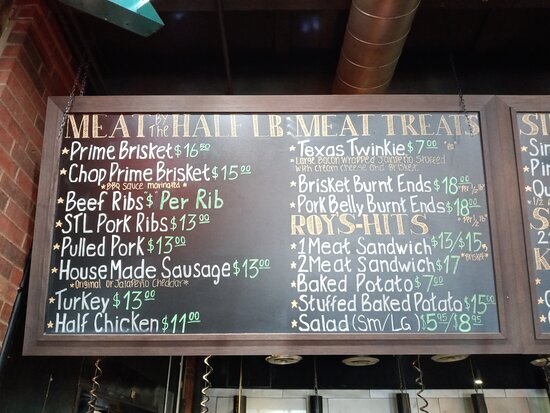 MEAT BY The HALF LB.
*Prime Brisket $16.50
*Chop Prime Brisket $15.00
*BBQ sauce marinated*
*Beef Ribs $ Per Rib
*STL Pork Ribs $13.00
*Pulled Pork $13.00
*House Made Sausage $13.00
*Original or Jalapeño Cheddar*
*Turkey $13.00
*Half Chicken $11.00
MEAT TREATS
*Texas Twinkie $7.00
*Large Bacon wrapped Jalapeño Stuffed
with cream cheese and Brisket*
*Brisket Burnt Ends $18.00
*Per 1/2 lb*
*Pork Belly Burnt Ends $18.00
*Per 1/2 lb*
ROY'S-HITS
*1 Meat Sandwich $13/$15
*Brisket*
*2 Meat Sandwich $17
*Baked Potato $7.00
*Stuffed Baked Potato $15.00
*Salad (Sm/Lg) $5.95/$8.95